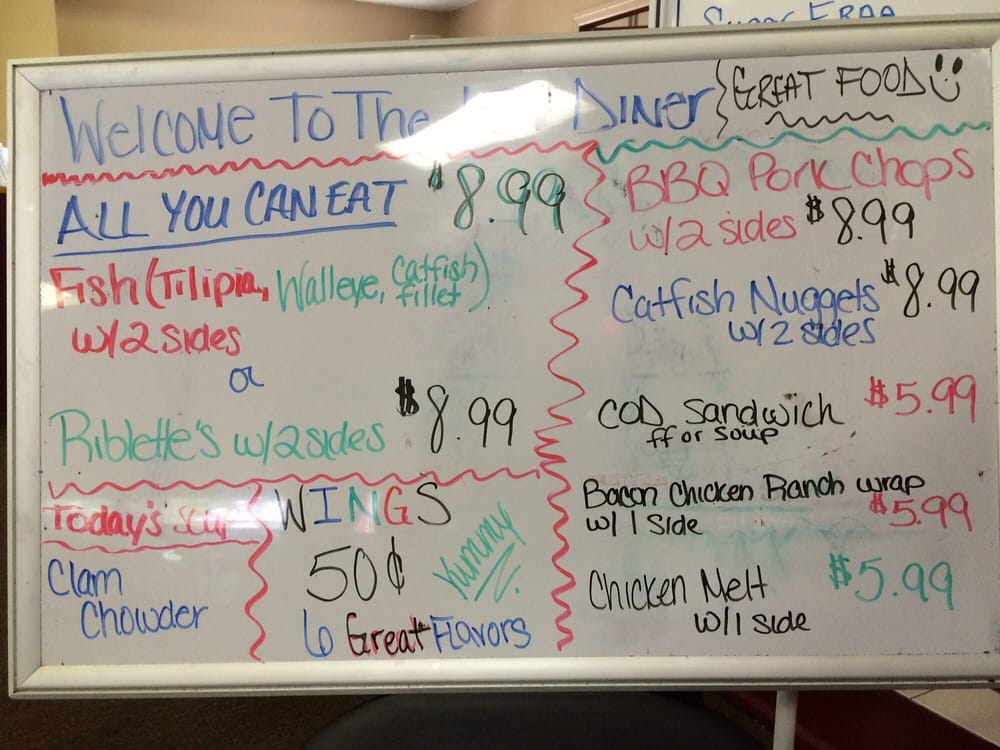 Welcome To The Diner
GREAT FOOD
ALL YOU CAN EAT $8.99
Fish (Tilipia, Walleye, Catfish
fillet)
w/2 sides
or
Riblette's w/2 sides $8.99
Today's Soup
Clam
Chowder
WINGS
50¢
Yummy
6 Great Flavors
BBQ Pork Chops
w/2 sides $8.99
Catfish Nuggets $8.99
w/2 sides
COD Sandwich $5.99
ff or soup
Bacon Chicken Ranch wrap
w/1 side $5.99
Chicken Melt $5.99
w/1 side